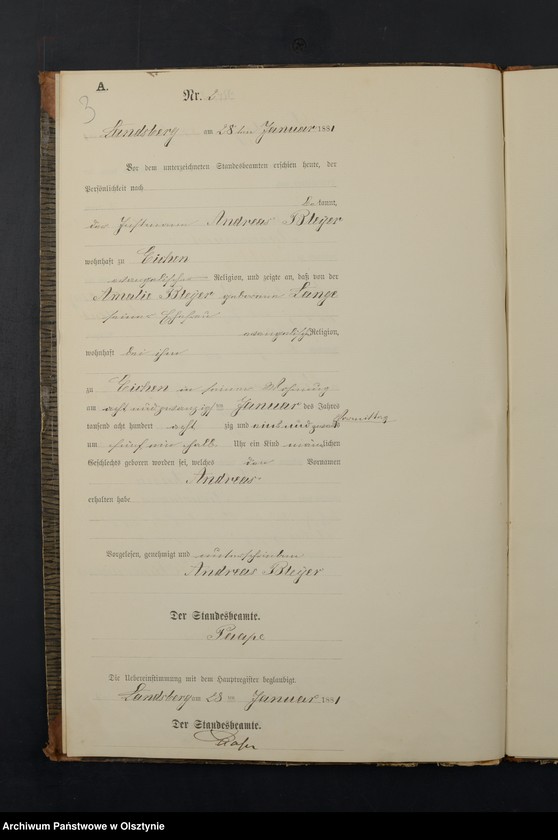 A.
3
Nr. 2
Landsberg am 28 ten Januar 1881
Vor dem unterzeichneten Standesbeamten erschien heute, der
Persönlichkeit nach
bekannt,
der Instmann Andreas Bleyer
wohnhaft zu Eichen
evangelischer Religion, und zeigte an, daß von der
Amalie Bleyer geborene Lange
seiner Ehefrau
evangelisch Religion,
wohnhaft bei ihm
zu Eichen in seiner Wohnung
am acht und zwanzigsten Januar des Jahres
tausend acht hundert acht zig und
Vormittag
um Uhr ein Kind männlichen
Geschlechts geboren worden sei, welches den Vornamen
Andreas
erhalten habe
Vorgelesen, genehmigt und unterschrieben
Andreas Bleyer
Der Standesbeamte.
Paape
Die Uebereinstimmung mit dem Hauptregister beglaubigt.
Landsberg am 28 ten Januar 1881
Der Standesbeamte.
Paape
Archiwum Państwowe w Olsztynie